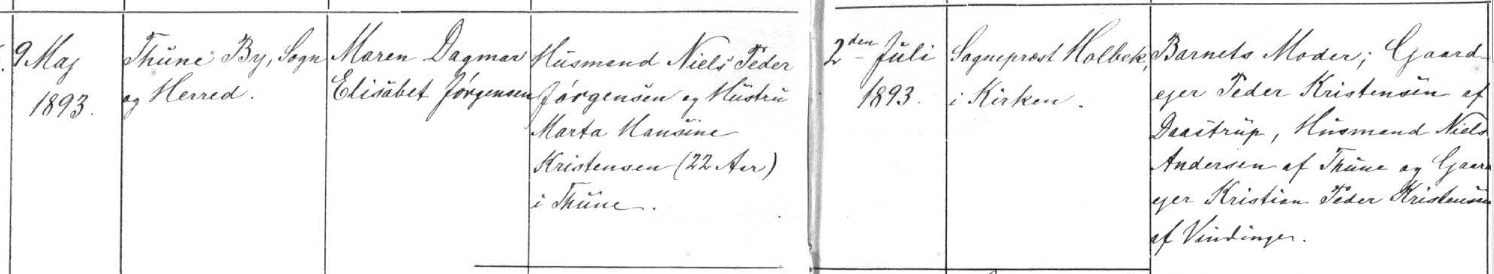 9 Maj
1893.
Thune By, Sogn
og Herred.
Maren Dagmar
Elisabet Jørgensen
Husmand Niels Peder
Jørgensen og Hustru
Marta Hansine
Kristensen (22 Aar)
i Thune.
2den Juli
1893.
Sognepræst Holbek,
i Kirken.
Barnets Moder; Gaard-
ejer Peder Kristensen af
Daastrup, Husmand Niels
Andersen af Thune og Gaard
ejer Kristian Peder Kristensen
af Vindinge.